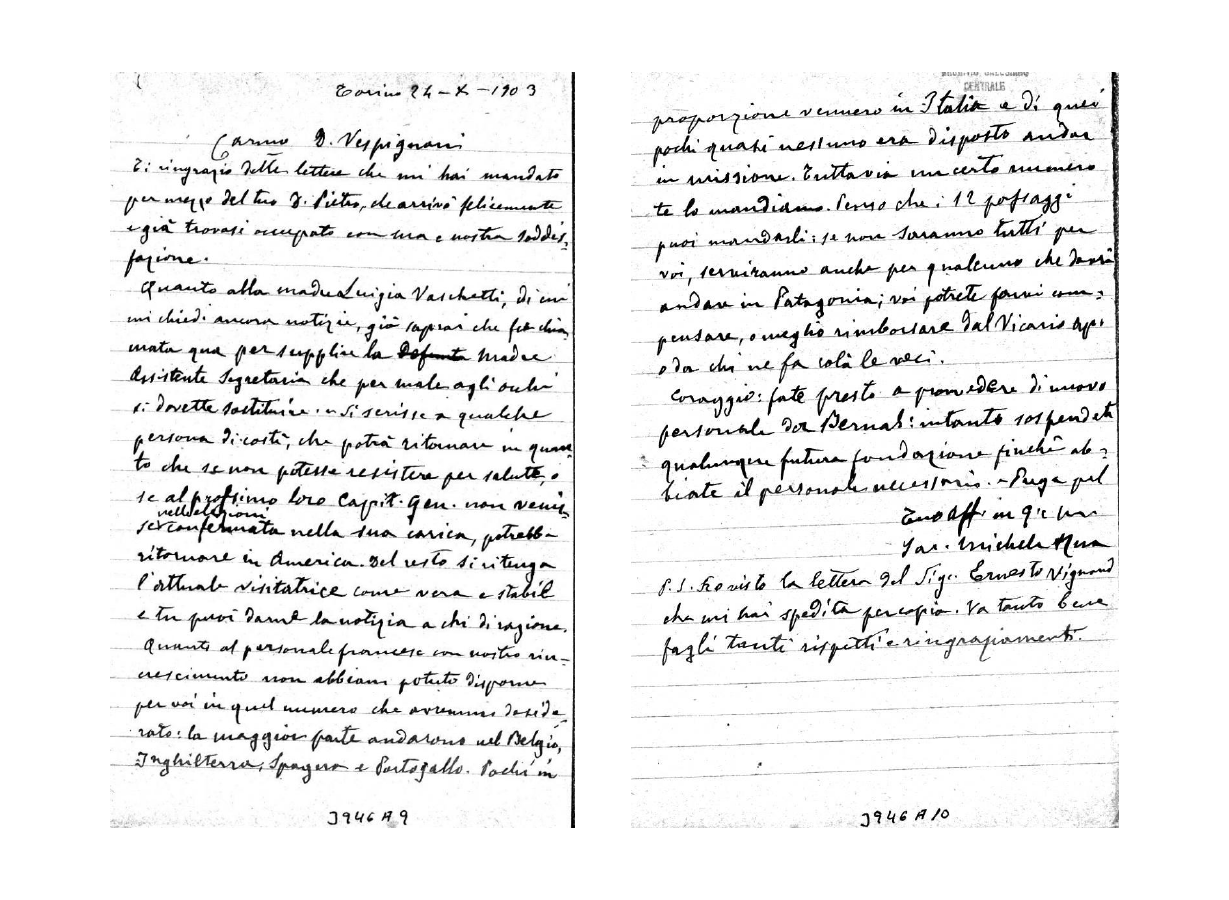 Torino 24-X-1903
Carmo D. Vespignani
Ti ringrazio delle lettere che mi hai mandato
per mezzo del tuo D. Pietro, che arrivò felicemente
e già trovasi occupato con sua e nostra soddis=
fazione.
Quanto alla madre Luigia Vaschetti, di cui
mi chiedi ancora notizie, già saprai che fu chia
mata qua per supplire la Defunta madre
Assistente Segretaria che per male agli occhi
si dovette sostituire. Si scrisse a qualche
persona di costì, che potrà ritornare in quan
to che se non potesse resistere per salute, o
se al prossimo loro Capit. Gen. non venis=
nelle elezioni
se confermata nella sua carica, potrebbe
ritornare in America. Del resto si ritenga
l'attuale visitatrice come vera e stabile
e tu puoi darne la notizia a chi di ragione.
Quanto al personale francese con nostro rin-
crescimento non abbiam potuto disporne
per voi in quel numero che avremmo deside-
rato: la maggior parte andarono nel Belgio,
Inghilterra, Spagna e Portogallo. Pochi in
J946A9
ARCHIVIO SALESIANO
CENTRALE
proporzione vennero in Italia e di quei
pochi quasi nessuno era disposto andar
in missione. Tuttavia un certo numero
te lo mandiamo. Penso che i 12 passaggi
puoi mandarli: se non saranno tutti per
voi, serviranno anche per qualcuno che dovrà
andare in Patagonia; voi potrete farvi com=
pensare, o meglio rimborsare dal Vicario Ap.
o da chi ne fa colà le veci.
Coraggio: fate presto a provvedere di nuovo
personale da Bernal: intanto sospendete
qualunque futura fondazione finchè ab=
biate il personale necessario. - Prega pel
Tuo aff. in G. C.
Sac. Michele Rua
P.S. Ho visto la lettera del Sig. Ernesto Vignaud
che mi hai spedita per copia. Va tanto bene
fagli tanti rispetti e ringraziamenti.
J946A10